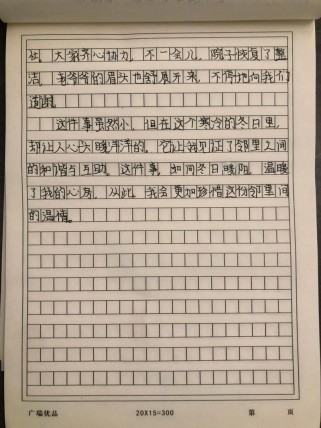 尘。大家齐心协力，不一会儿，院子恢复了整
洁。老爷爷的眉头也舒展开来，不停地向我们
道谢。
这件事虽然小，但在这个寒冷的冬日里，
却让人心头暖洋洋的。它让我见证了邻里之间
的和谐与互助。这件事，如同冬日暖阳，温暖
了我的心房，从此，我会更加珍惜这份邻里间
的温情。
广瑞优品 20X15=300 第 页